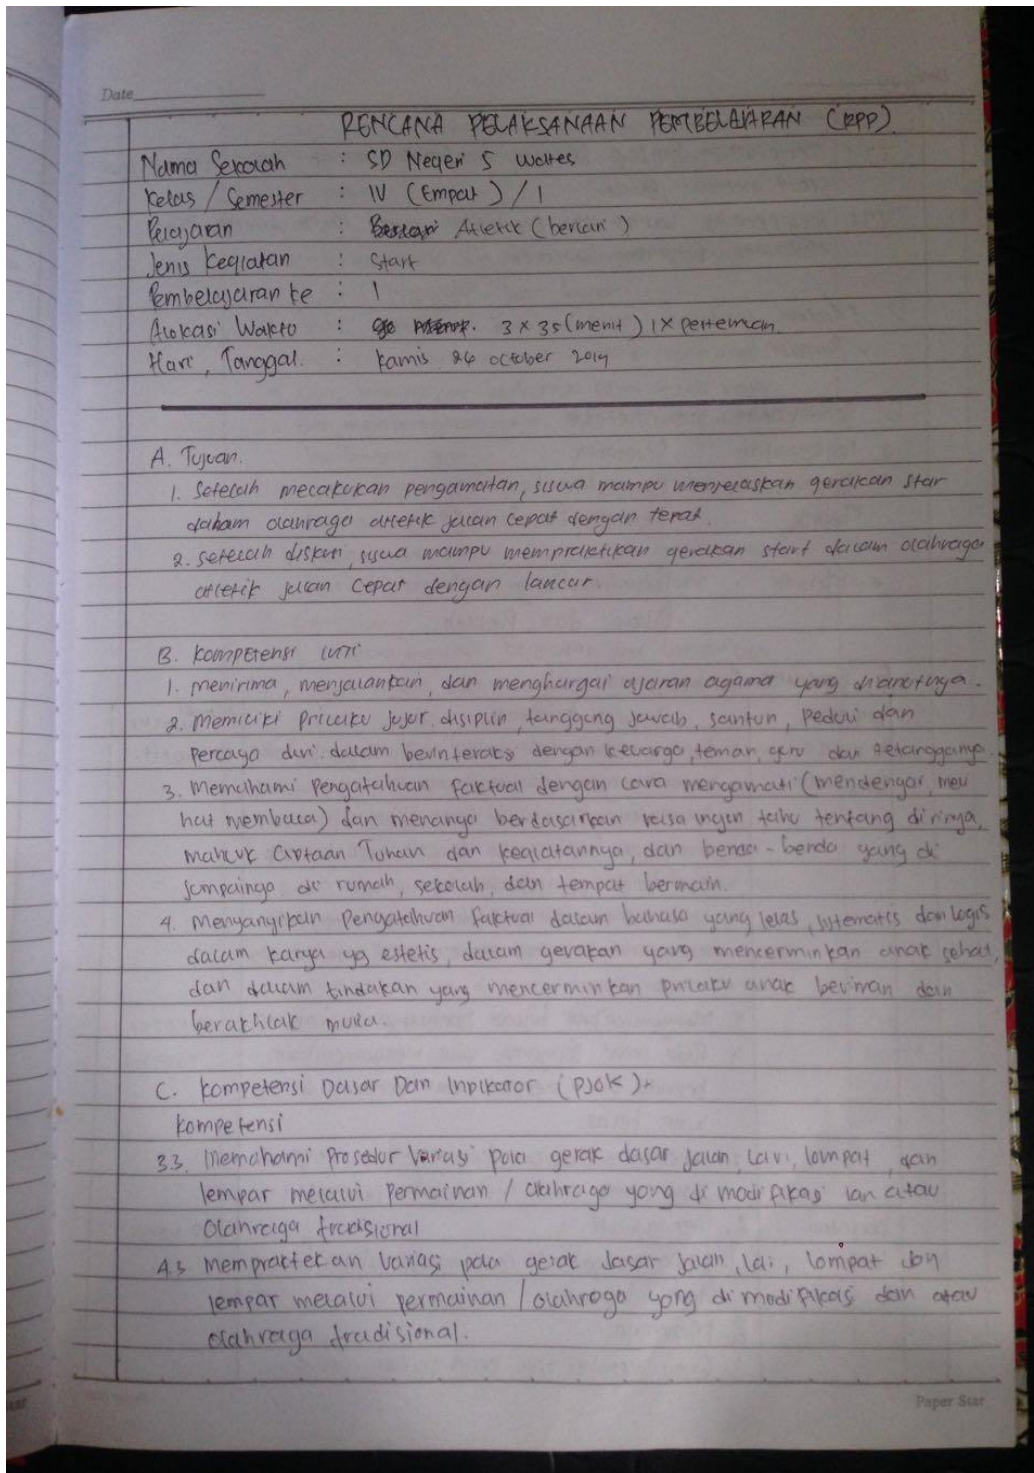 Date
RENCANA PELAKSANAAN PEMBELAJARAN (RPP).
Nama Sekolah : SD Negeri 5 Wates
Kelas / Semester : IV (Empat) / 1
Pelajaran : Atletik (berlari)
Jenis Kegiatan : Start
Pembelajaran ke : 1
Alokasi Waktu : 3 x 35 (menit) 1x perteman
Hari, Tanggal. : Kamis 24 october 2019
A. Tujuan.
1. Setelah melakukan pengamatan, siswa mampu menjelaskan gerakan star
dalam olahraga atletik jalan cepat dengan tepat.
2. setelah diskusi, siswa mampu mempraktikan gerakan start dalam olahraga
atletik jalan cepat dengan lancar.
B. Kompetensi inti
1. menirima, menjalankan, dan menghargai ajaran agama yang dianutnya.
2. Memiliki prilaku jujur, disiplin, tanggung jawab, santun, peduli dan
percaya diri dalam berinteraksi dengan keluarga, teman, guru dan tetangganya.
3. Memahami Pengatahuan faktual dengan cara mengamati (mendengar, meli
hat membaca) dan menanya berdasarkan rasa ingin tahu tentang dirinya,
mahluk ciptaan Tuhan dan kegiatannya, dan benda-benda yang di
jumpainya di rumah, sekolah, dan tempat bermain.
4. Menyanyikan Pengatahuan faktual dalam bahasa yang jelas, sistematis dan logis
dalam karya yg estetis, dalam gerakan yang mencerminkan anak sehat,
dan dalam tindakan yang mencerminkan prilaku anak beriman dan
berakhlak mulia.
C. Kompetensi Dasar Dan Indikator (PJOK).
Kompetensi
3.3. Memahami Prosedur Variasi pola gerak dasar jalan, lari, lompat, dan
lempar melalui Permainan / olahraga yang di modifikasi lan atau
Olahraga tradisional
4.3 Mempraktekan variasi pola gerak dasar jalan, lai, lompat dan
lempar melalui permainan / olahraga yang di modifikasi dan atau
olahraga tradisional.
Paper Star